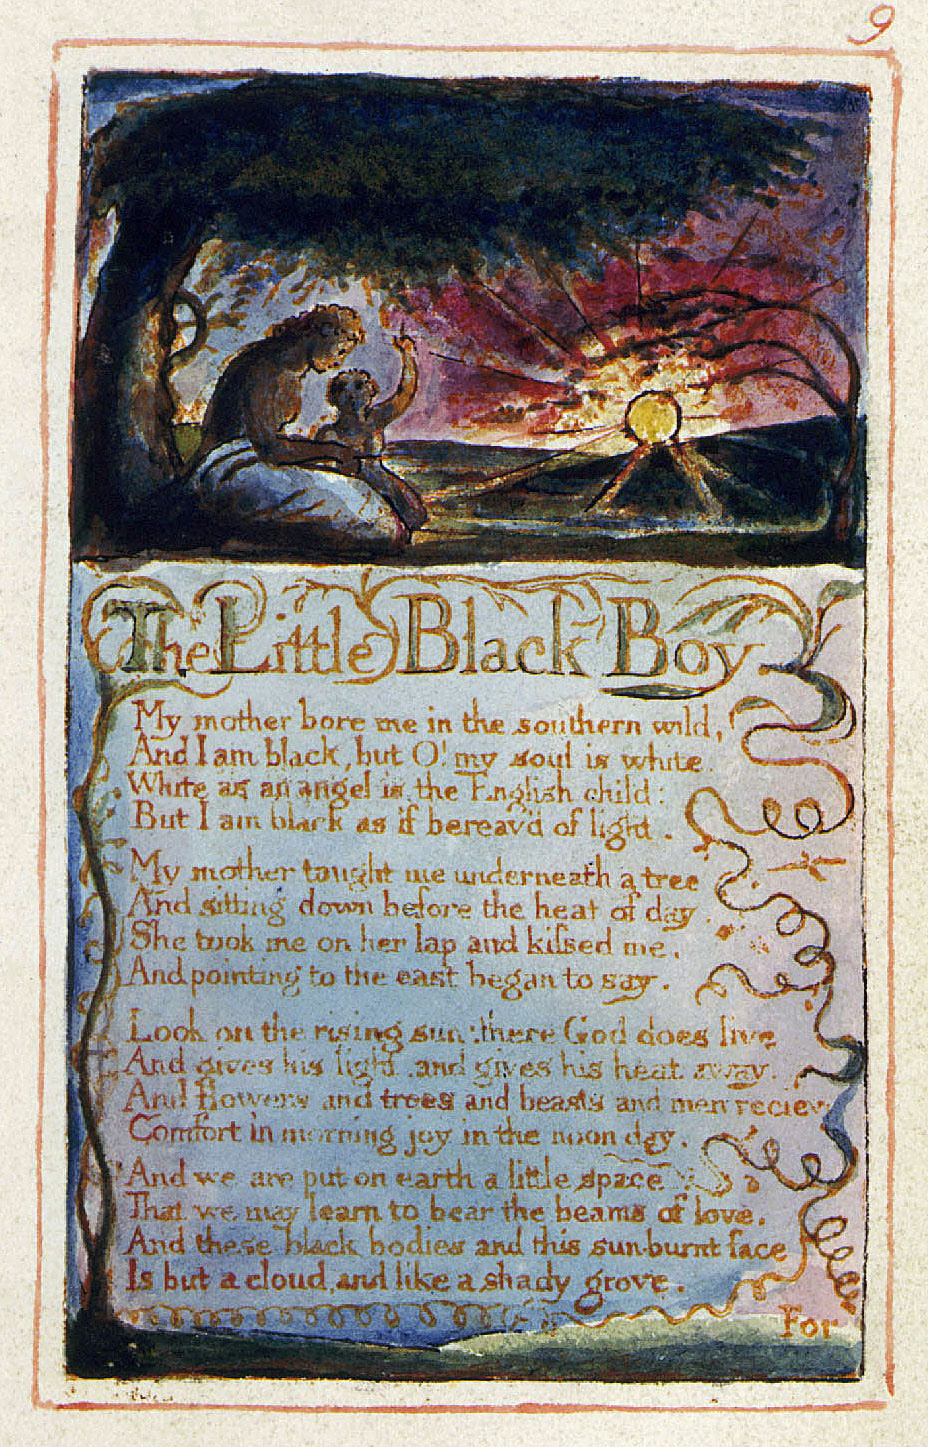 9
The Little Black Boy
My mother bore me in the southern wild,
And I am black, but O! my soul is white.
White as an angel is the English child:
But I am black as if bereav'd of light.
My mother taught me underneath a tree
And sitting down before the heat of day.
She took me on her lap and kiſsed me,
And pointing to the east began to say.
Look on the rising sun: there God does live
And gives his light, and gives his heat away.
And flowers and trees and beasts and men recieve
Comfort in morning joy in the noon day.
And we are put on earth a little space
That we may learn to bear the beams of love.
And these black bodies and this sun-burnt face
Is but a cloud, and like a shady grove.
For